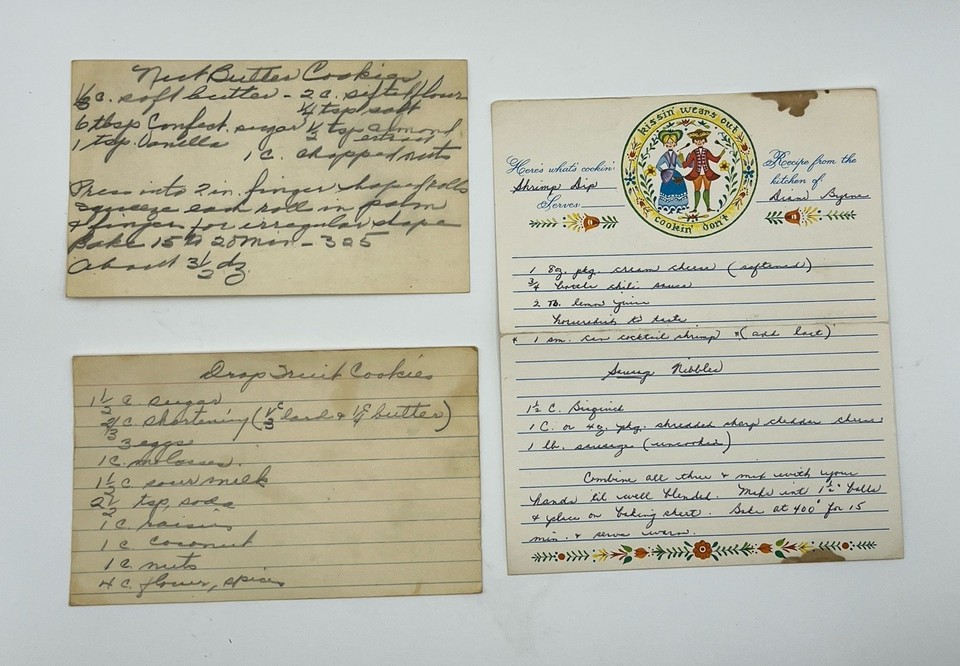 Nut Butter Cookies
1/3 C. soft butter - 2 C. sifted flour
1/4 tsp salt
6 tbsp Confect. sugar 1/2 tsp almond
extract
1 tsp. Vanilla
1 C. chopped nuts
Press into 2 in. finger shaped rolls
squeeze each roll in palm
& fingers for irregular shape
Bake 15 to 20 min - 325
About 3 1/2 dz.
Drop Fruit Cookies
1 1/2 C. sugar
2/3 C. shortening (1/3 C lard & 1/4 C butter)
3 eggs
1 C. molasses.
1 1/2 C sour milk
2 1/2 tsp, soda
1 C. raisins
1 C. coconut
1 C nuts
4 C. flour, spices
kissin' wears out
cookin' don't
Here's what's cookin'
Shrimp Dip
Serves
Recipe from the
kitchen of
Diane Byrne
1 8oz. pkg. cream cheese (softened)
3/4 bottle chili sauce
2 Tb. lemon juice
horseradish to taste
* 1 sm. can cocktail shrimp *(add last)
Sausage Nibbles
1 1/2 C. Bisquick
1 C. or 4oz. pkg. shredded sharp cheddar cheese
1 lb. sausage (uncooked)
Combine all three & mix with your
hands til well blended. Make into 1 1/2" balls
& place on baking sheet. Bake at 400° for 15
min. & serve warm.